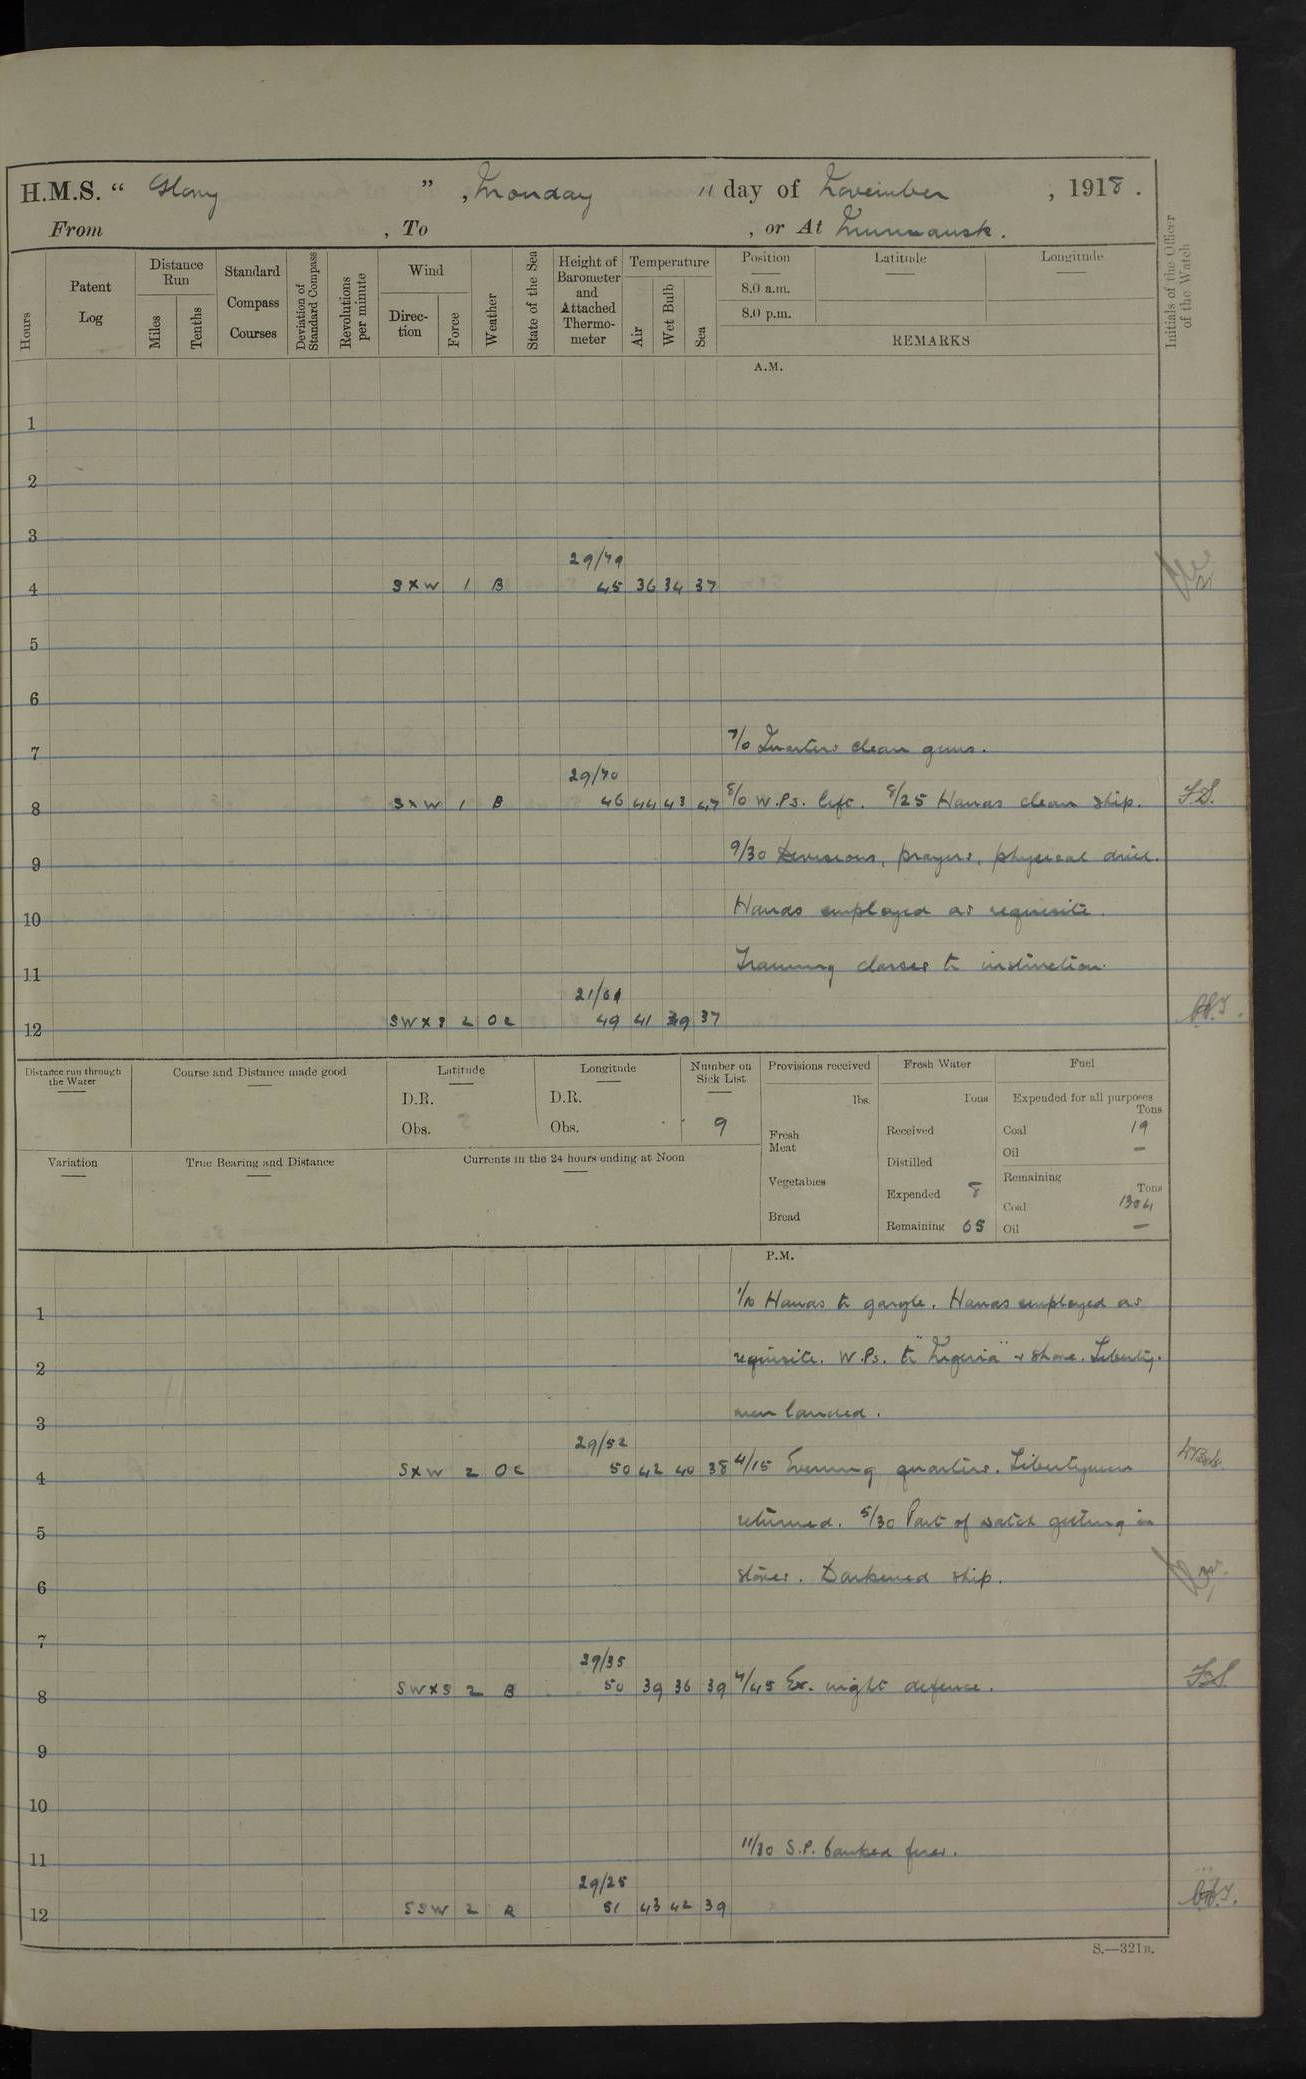 H.M.S. “ Glory ” , Monday 11 day of November , 1918 .
From , To , or At Murmansk .
Hours
Patent Log
Distance Run
Miles
Tenths
Standard Compass Courses
Deviation of Standard Compass
Revolutions per minute
Wind
Direction
Force
Weather
State of the Sea
Height of Barometer and Attached Thermometer
Temperature
Air
Wet Bulb
Sea
Position
8.0 a.m.
8.0 p.m.
Latitude
Longitude
REMARKS
Initials of the Officer of the Watch
A.M.
1
2
3
29/79
4 S x W 1 B 45 36 34 37
5
6
7 7/0 Quarters clean guns.
29/70
8 S x W 1 B 46 44 43 47 8/0 W.Ps. left. 8/25 Hands clean ship. F.S.
9 9/30 Divisions, prayers, physical drill.
10 Hands employed as requisite.
11 Training classes to instruction.
12 SW x S 2 OC 49 41 39 37
Distance run through the Water
Course and Distance made good
Latitude
D.R.
Obs.
Longitude
D.R.
Obs.
Number on Sick List
9
Provisions received
lbs.
Fresh Meat
Vegetables
Bread
Fresh Water
Tons
Received
Distilled
Expended 8
Remaining 65
Fuel
Expended for all purposes
Tons
Coal 19
Oil —
Remaining
Tons
Coal 1304
Oil —
Variation
True Bearing and Distance
Currents in the 24 hours ending at Noon
P.M.
1 1/10 Hands to gargle. Hands employed as
2 requisite. W.Ps. to "Nigeria" & shore. Liberty-
3 men landed.
29/52
4 S x W 2 OC 50 42 40 38 4/15 Evening quarters. Libertymen
5 returned. 5/30 Part of watch getting in
6 stores. Darkened ship.
7
29/35
8 SW x S 2 B 50 39 36 39 7/45 Ex. night defence. F.S.
9
10
11 11/30 S.P. banked fires.
29/25
12 SSW 2 R 51 43 42 39
S.—321B.